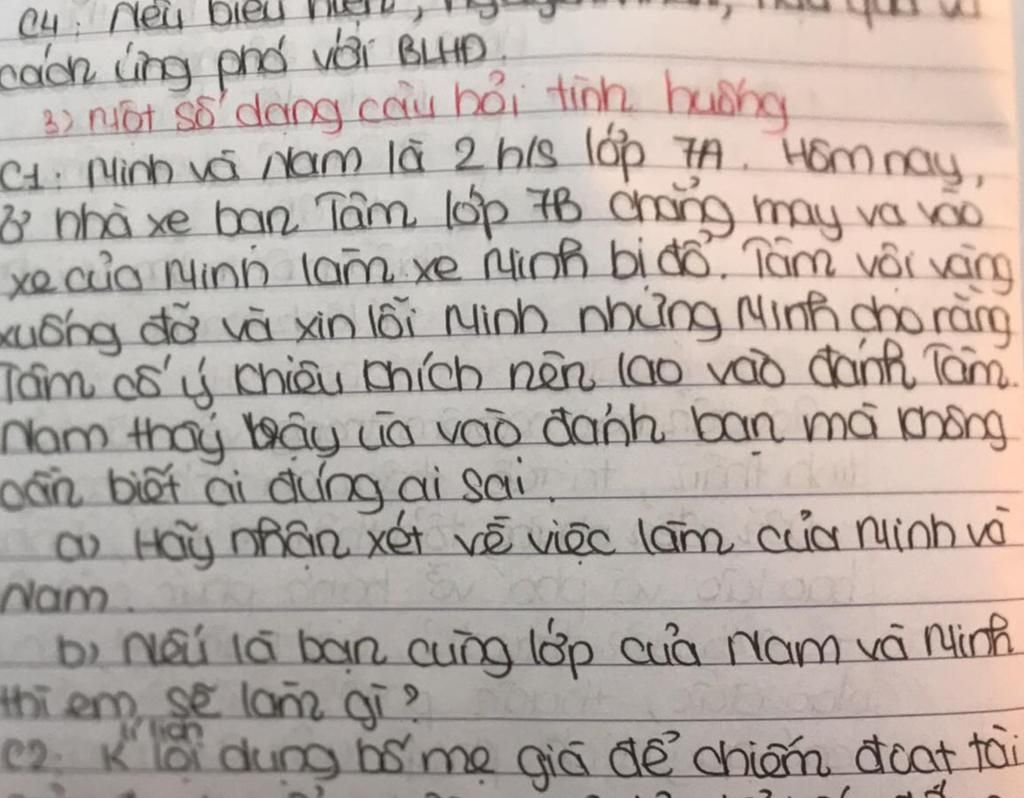 C4: Nêu biểu hiện,
cách ứng phó với BLHĐ.
3) Một số dạng câu hỏi tình huống
C1: Minh và Nam là 2 h/s lớp 7A. Hôm nay,
ở nhà xe bạn Tâm lớp 7B chẳng may va vào
xe của Minh làm xe Minh bị đổ. Tâm vội vàng
xuống đỡ và xin lỗi Minh nhưng Minh cho rằng
Tâm cố ý khiêu khích nên lao vào đánh Tâm.
Nam thấy vậy ùa vào đánh bạn mà không
cần biết ai đúng ai sai.
a) Hãy nhận xét về việc làm của Minh và
Nam.
b) Nếu là bạn cùng lớp của Nam và Minh
thì em sẽ làm gì?
C2: K lợi dụng bố mẹ già để chiếm đoạt tài